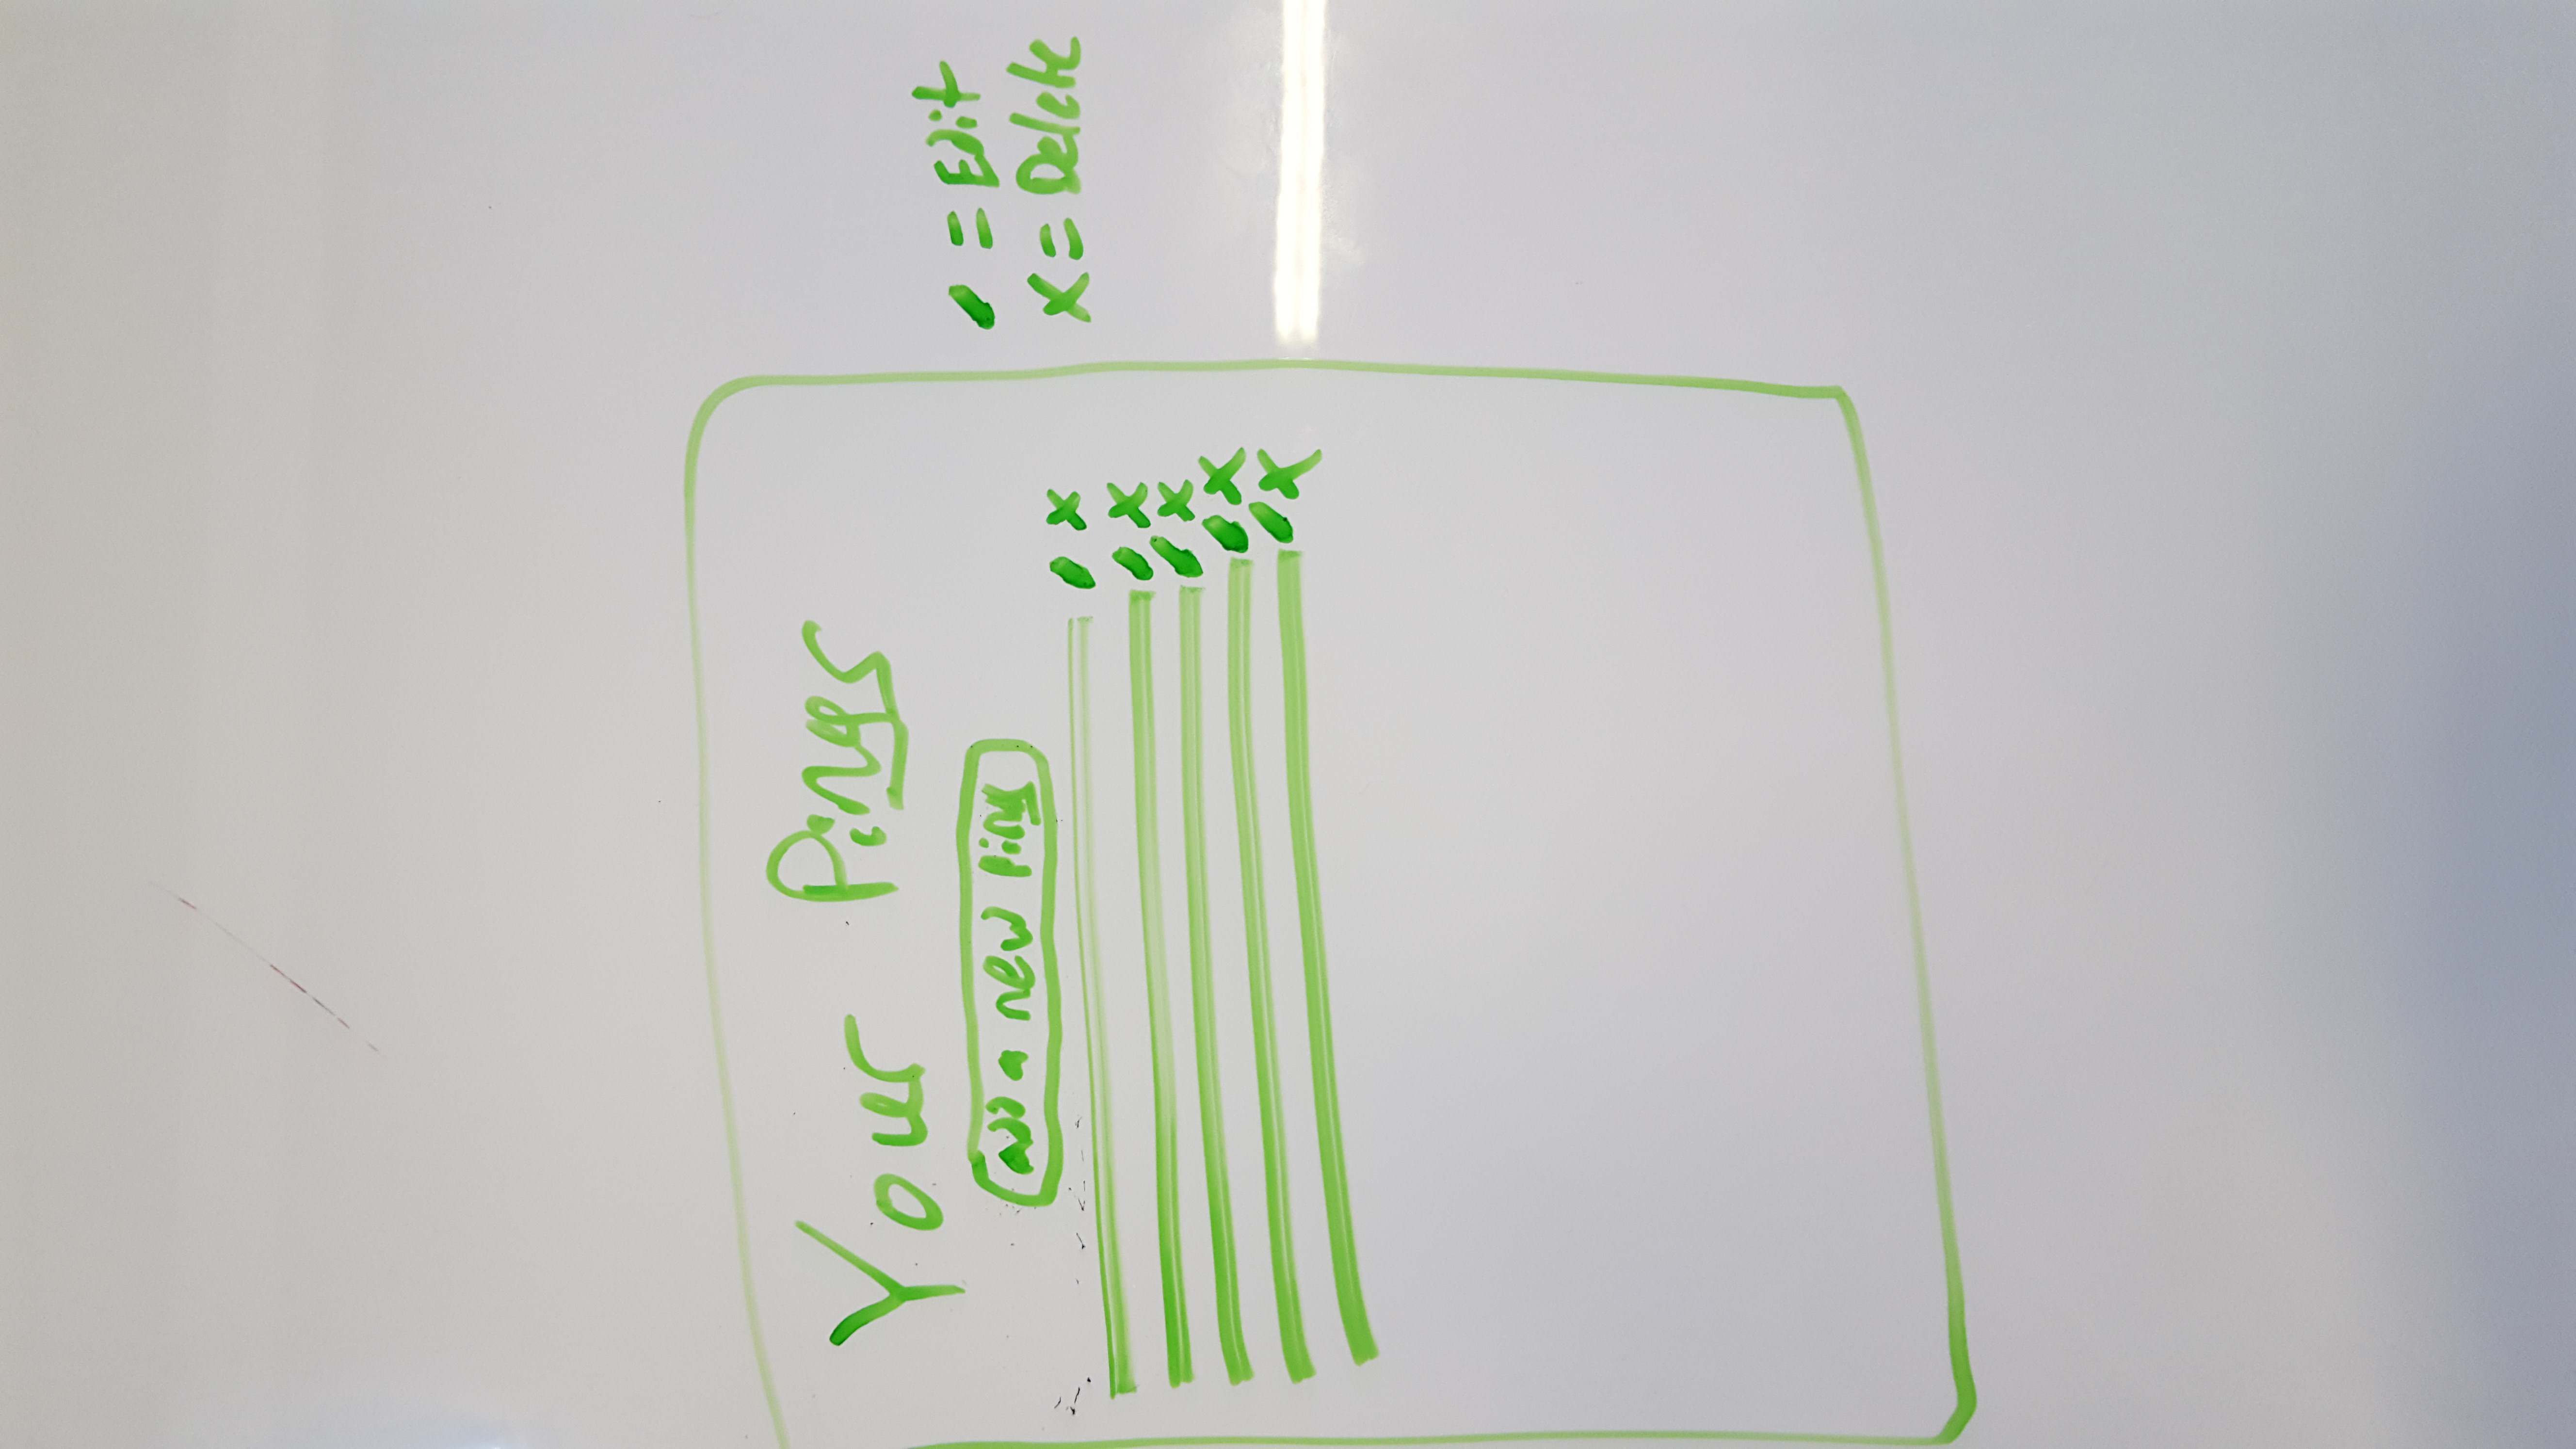 Your Pings
add a new Ping
X
X
X
X
X
= Edit
X = Delete